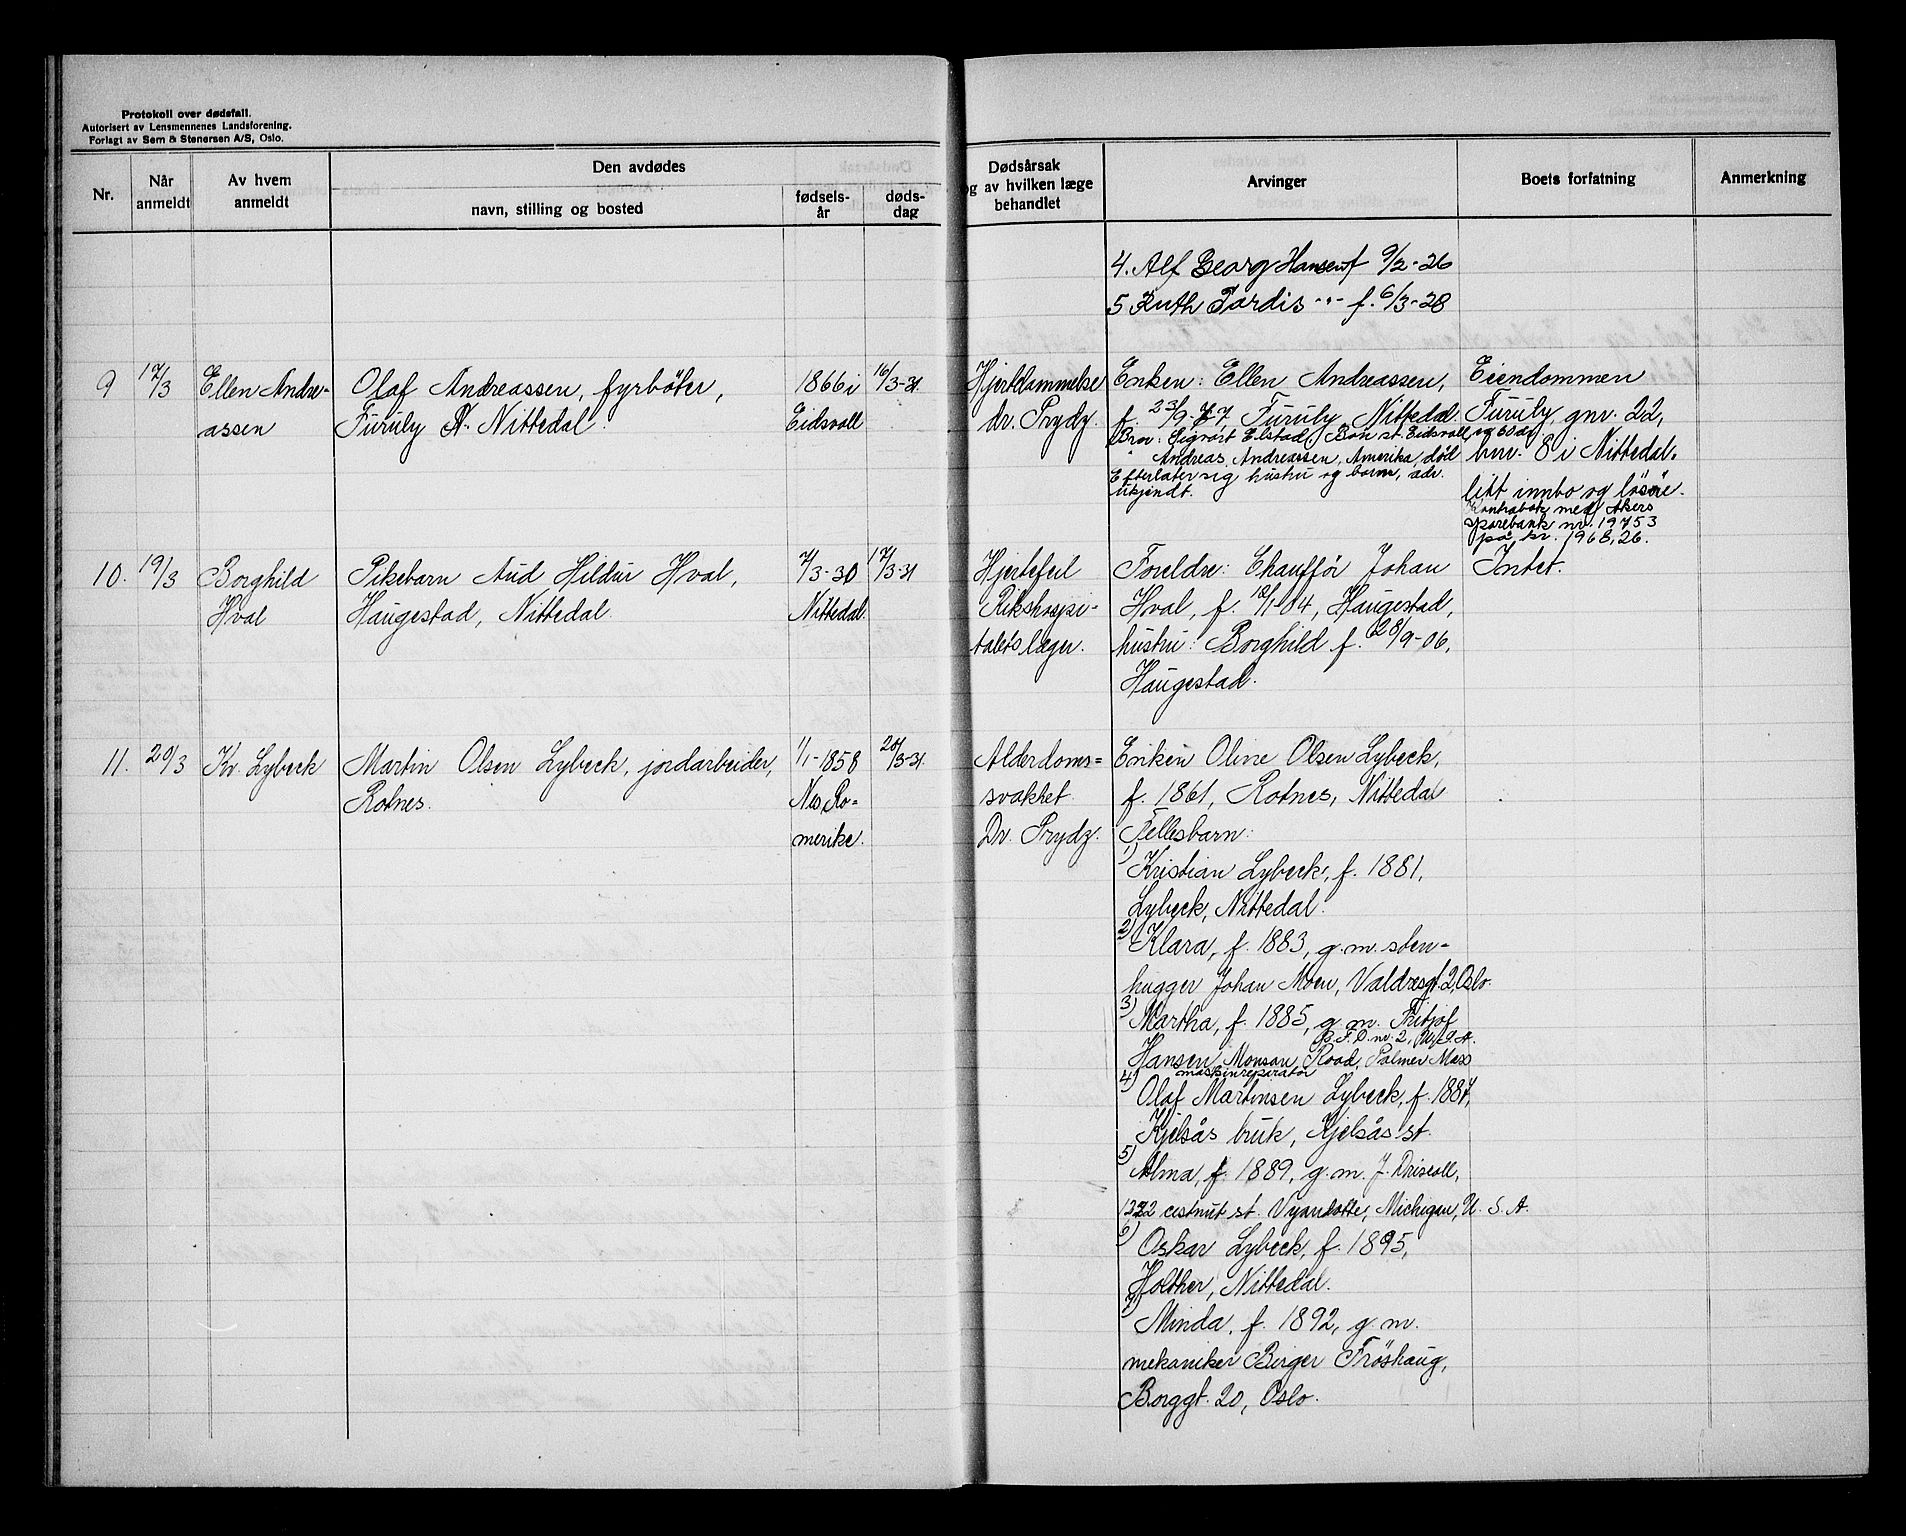 Protokoll over dødsfall.
Autorisert av Lensmennenes Landsforening.
Forlagt av Sem & Stenersen A/S, Oslo.
Nr.
Når anmeldt
Av hvem anmeldt
Den avdødes
navn, stilling og bosted
fødsels-år
døds-dag
Dødsårsak
og av hvilken læge
behandlet
Arvinger
Boets forfatning
Anmerkning
4. Alf Georg Hansen f 9/2-26
5 Ruth Tordis -"- f. 6/3-28
9
17/3
Ellen Andre-
assen
Olaf Andreassen, fyrbøter,
Furuly pr. Nittedal
1866 i
Eidsvoll
16/3-31.
Hjertelammelse
dr. Prydz.
Enken: Ellen Andreassen,
f. 23/9-77, Furuly, Nittedal.
Bror: Sigvart Elstad, Bøn st. Eidsvoll,
" Andreas Andreassen, Amerika, død
Efterlater sig hustru og barn, adr.
ukjendt.
Eiendommen
Furuly gnr. 22,
bnr. 8 i Nittedal.
litt innbo og løsøre.
Kontrabok med Akers
sparebank nr. 19753
på kr. 1968,26.
10.
19/3
Borghild
Hval
Pikebarn Aud Hildur Hval,
Haugestad, Nittedal.
7/3-30
Nittedal.
17/3-31
Hjertefeil
Rikshospi-
talets læger.
Foreldre: Chauffør Johan
Hval, f. 18/1-04, Haugestad,
hustru: Borghild f. 28/9-06,
Haugestad.
Intet.
11.
20/3
Kr. Lybeck
Martin Olsen Lybeck, jordarbeider,
Rotnes.
1/1-1858
Nes, Ro-
merike.
20/3-31.
Alderdoms-
svakhet
Dr. Prydz.
Enken Oline Olsen Lybeck,
f. 1861, Rotnes, Nittedal
Fellesbarn:
1) Kristian Lybeck, f. 1881,
Lybeck, Nittedal.
2) Klara, f. 1883, g.m. sten-
hugger Johan Moen, Valdresgt. 2, Oslo.
3) Martha, f. 1885, g.m. Fritjof
R. F. D. nr. 2, U.S.A.
Hansen, Monson Road, Palmer Mass
maskinreparatør
4) Olaf Martinsen Lybeck, f. 1887,
Kjelsås bruk, Kjelsås st.
5) Alma, f. 1889, g.m. J. Driscoll,
1322 cestnut st. Vyandotte, Michigan, U. S. A.
6) Oskar Lybeck, f. 1895,
Holther, Nittedal.
7) Minda, f. 1892, g.m.
mekaniker Birger Frøshaug,
Borggt. 20, Oslo.